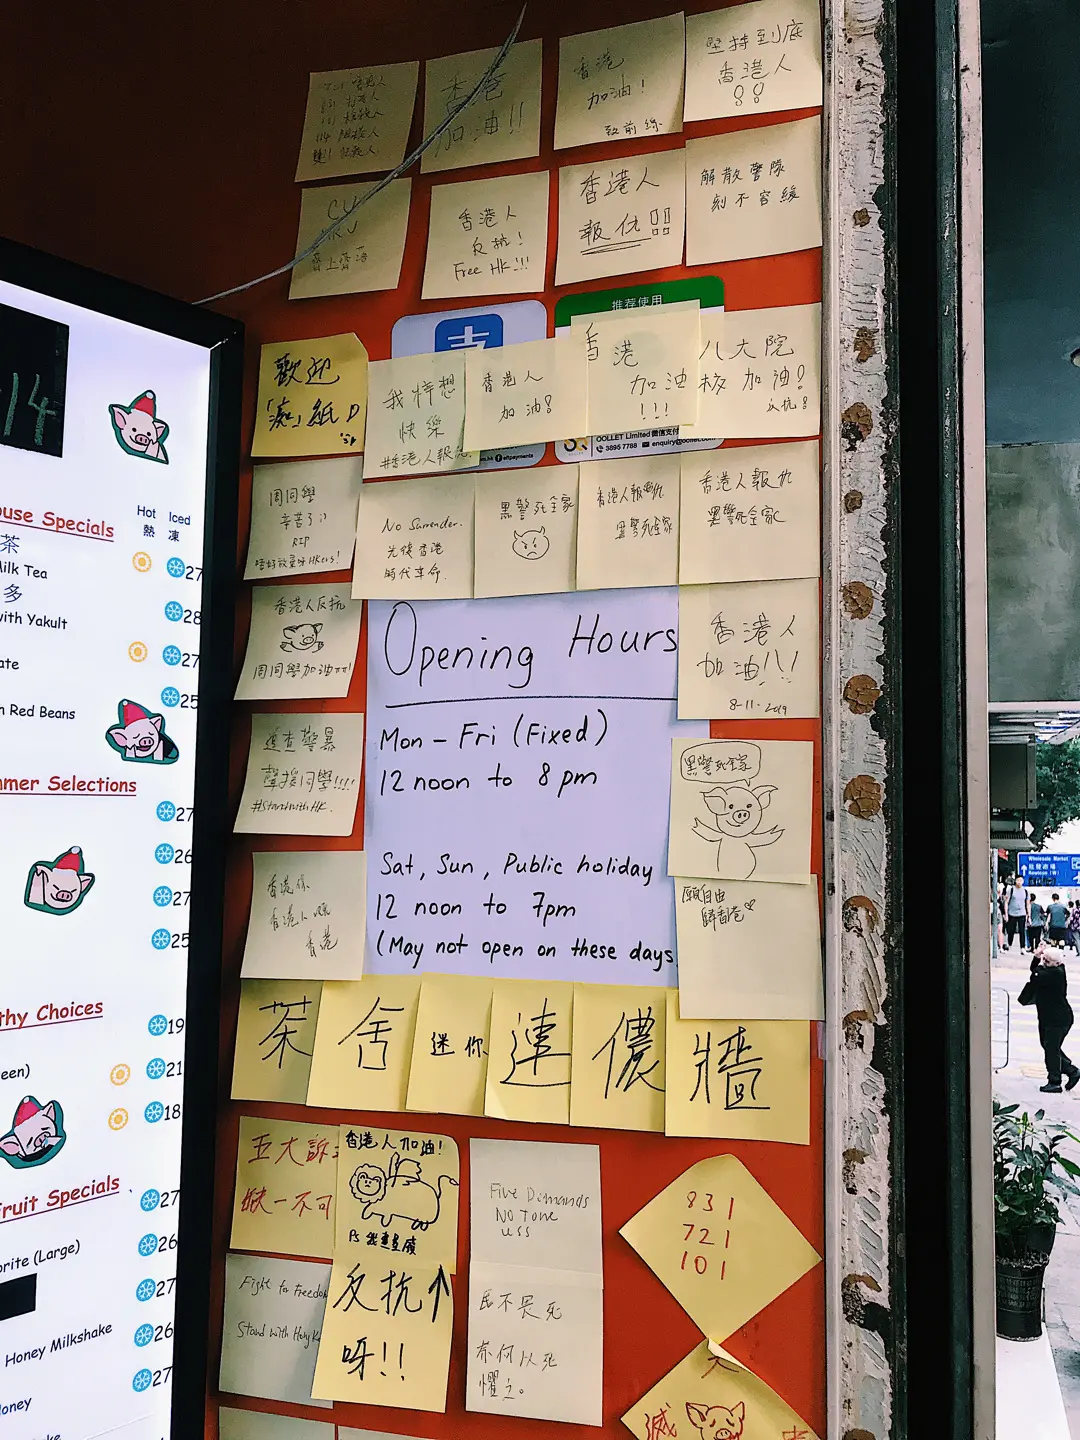 香港
加油!!
香港
加油!
致前線
堅持到底
香港人
香港人
反抗!
Free HK!!!
香港人
報仇!!
解散警隊
刻不容緩
推荐使用
支
歡迎
「痴」紙
我特想
快樂
#香港人報仇
香港人
加油!
香港
加油
!!!
八大院
校加油!
反抗!
OOLLET Limited 微信支付
3895 7788 enquiry@oollet.com
周同學
辛苦了:)
RIP
No Surrender.
光復香港
時代革命.
黑警死全家
香港人報仇
黑警死全家
香港人報仇
黑警死全家
香港人反抗
周同學加油
Opening Hours
Mon - Fri (Fixed)
12 noon to 8 pm
Sat, Sun, Public holiday
12 noon to 7pm
(May not open on these days
香港人
加油!!!
8-11-2019
追查警暴
聲援同學!!!!
#StandwithHK.
黑警死全家
香港係
香港人嘅
香港
願自由
歸香港
茶舍迷你連儂牆
五大訴
缺一不可
香港人加油!
Five Demands
NOT one
less
831
721
101
Fight for Freedom
Stand with Hong Ko
反抗
呀!!
民不畏死
奈何以死
懼之。
滅
14
ouse Specials
Hot Iced
熱 凍
茶
Milk Tea
27
多
with Yakult
28
ate
27
n Red Beans
25
mmer Selections
27
26
27
25
thy Choices
19
een)
21
18
Fruit Specials
27
orite (Large)
26
27
Honey Milkshake
26
27
Honey
Wholesale Market